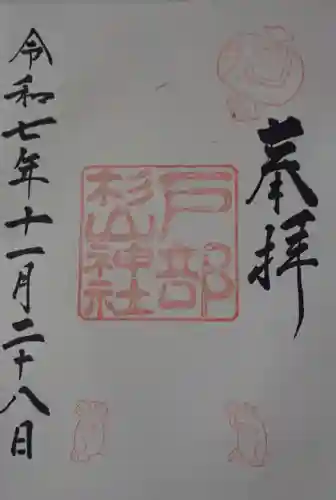 奉拝
戸部
杉山神社
令和七年十一月二十八日